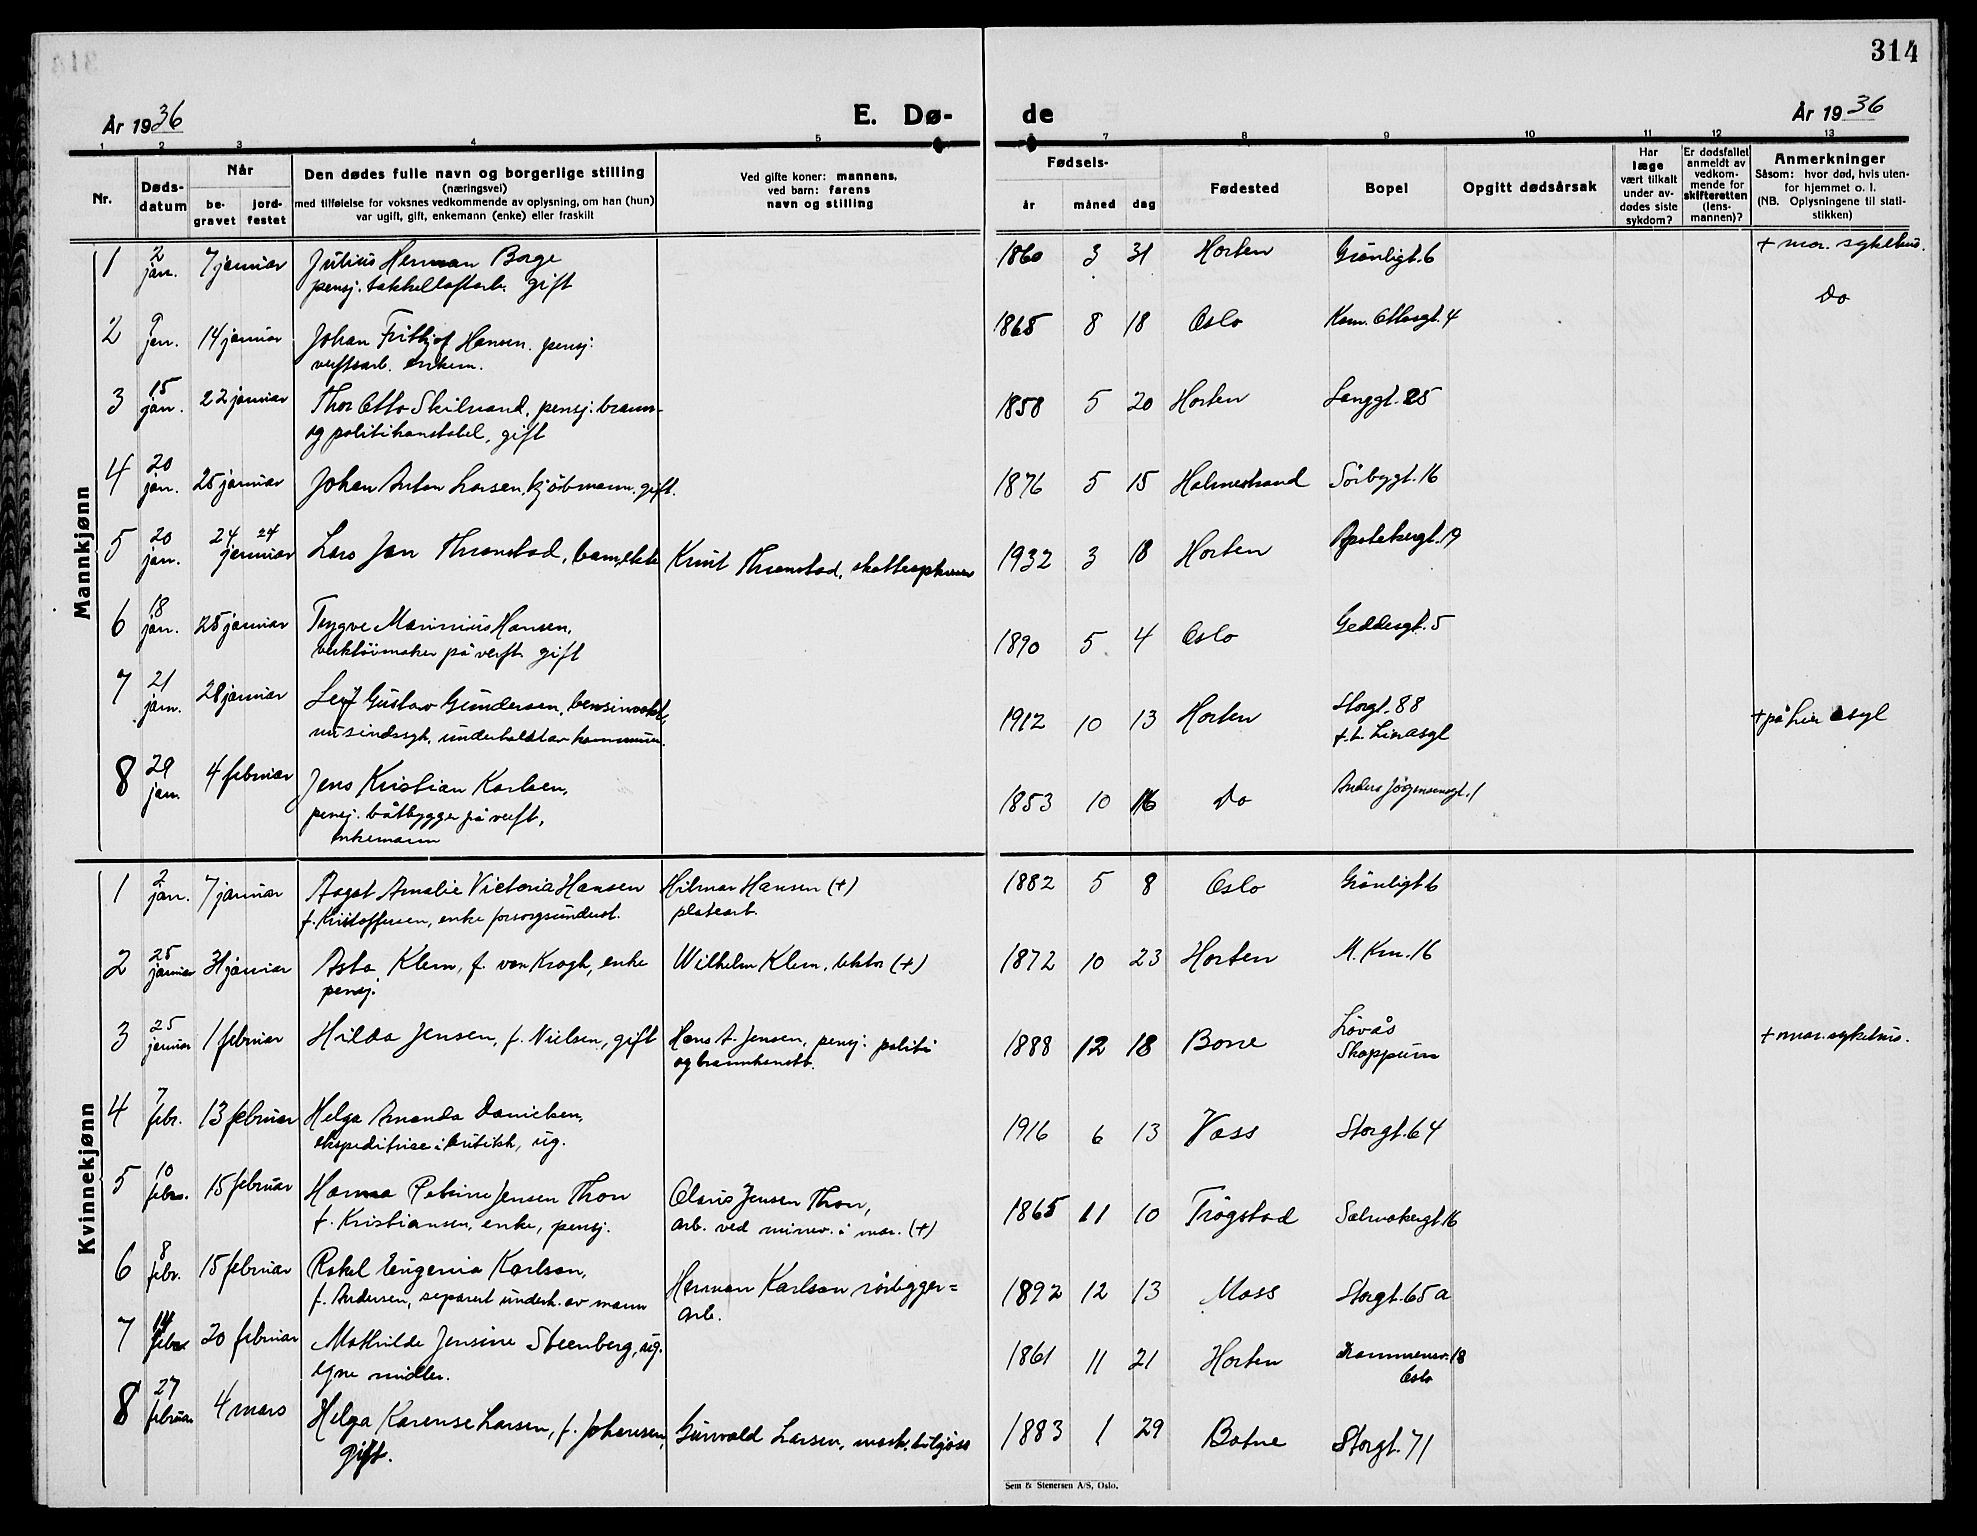 314
År 1936
E. Dø-
de
År 1936
1 2 3 4 5 7 8 9 10 11 12 13
Nr.
Døds-
datum
Når
be-
gravet
jord-
festet
Den dødes fulle navn og borgerlige stilling
(næringsvei)
med tilføielse for voksnes vedkommende av oplysning, om han (hun)
var ugift, gift, enkemann (enke) eller fraskilt
Ved gifte koner: mannens,
ved barn: farens
navn og stilling
Fødsels-
år måned dag
Fødested
Bopel
Opgitt dødsårsak
Har
læge
vært tilkalt
under av-
dødes siste
sykdom?
Er dødsfallet
anmeldt av
vedkom-
mende for
skifteretten
(lens-
mannen)?
Anmerkninger
Såsom: hvor død, hvis uten-
for hjemmet o. l.
(NB. Oplysningene til stati-
stikken)
Mannkjønn
1 2 jan. 7 januar Julius Herman Borge 1860 3 31 Horten Grønligt. 6 + mar. sykehus.
pensj. takkelloftarb. gift
Do
2 9 jan. 14 januar Johan Frithjof Hansen. pensj. 1865 8 18 Oslo Kom. Ottosgt. 4
verftsarb. enkem.
3 15 jan. 22 januar Thor Otto Skilvand, pensj. brann- 1858 5 20 Horten Langgt. 25
og politikonstabel, gift
4 20 jan. 25 januar Johan Anton Larsen, kjøbmann. gift. 1876 5 15 Holmestrand Sørbygt. 16
5 20 jan. 24 24 januar Lars Jan Thronstad, barn, ekte Knut Thronstad, 1932 3 18 Horten Apotekergt. 19
6 18 jan. 25 januar Trygve Marinius Hansen, 1890 5 4 Oslo Geddesgt. 5
verktøimaker på verft gift
7 21 jan. 28 januar Leif Gustav Gundersen, 1912 10 13 Horten Storgt. 88 + på Lier asyl
nu sindssyk, underholdt av kommun.
f. t. Lierasyl
8 29 jan. 4 februar Jens Kristian Karlsen, 1853 10 16 Do Anders Jørgensensgt. 1
pensj. båtbygger på verft,
enkemann
Kvinnekjønn
1 2 jan. 7 januar Aagot Amalie Victoria Hansen Hilmar Hansen (+) 1882 5 8 Oslo Grønligt 6
f. Kristoffersen, enke forsorgsunderst. platearb.
2 25 januar 31 januar Asta Klem, f. von Krogh, enke Wilhelm Klem, lektor (+) 1872 10 23 Horten M. Krn. 16
pensj.
3 25 januar 1 februar Hilda Jensen, f. Nielsen, gift Hans A. Jensen, pensj. politi 1888 12 18 Borre Løvås + mar. sykehus.
og brannkonstb.
Skoppum
4 7 febr. 13 februar Helga Amanda Danielsen, 1916 6 13 Voss Storgt. 64
ekspeditrise i butikk, ug.
5 10 febr. 15 februar Hanna Petrine Jensen Thon Olaus Jensen Thon, 1865 11 10 Trøgstad Salmakergt 16
f. Kristiansen, enke, pensj. arb. ved minev. i mar. (+)
6 8 febr. 15 februar Rakel Eugenia Karlson, Herman Karlson rørlegger= 1892 12 13 Moss Storgt. 65 a
f. Andersen, separert underh. av mann arb.
7 14 febr. 20 februar Mathilde Jensine Steenberg, ug. 1861 11 21 Horten Drammensv. 18
egne midler. Oslo
8 27 februar 4 mars Helga Karense Larsen, f. Johansen, Gunvald Larsen, 1883 1 29 Botne Storgt. 71
gift.
Sem & Stenersen A/S, Oslo.